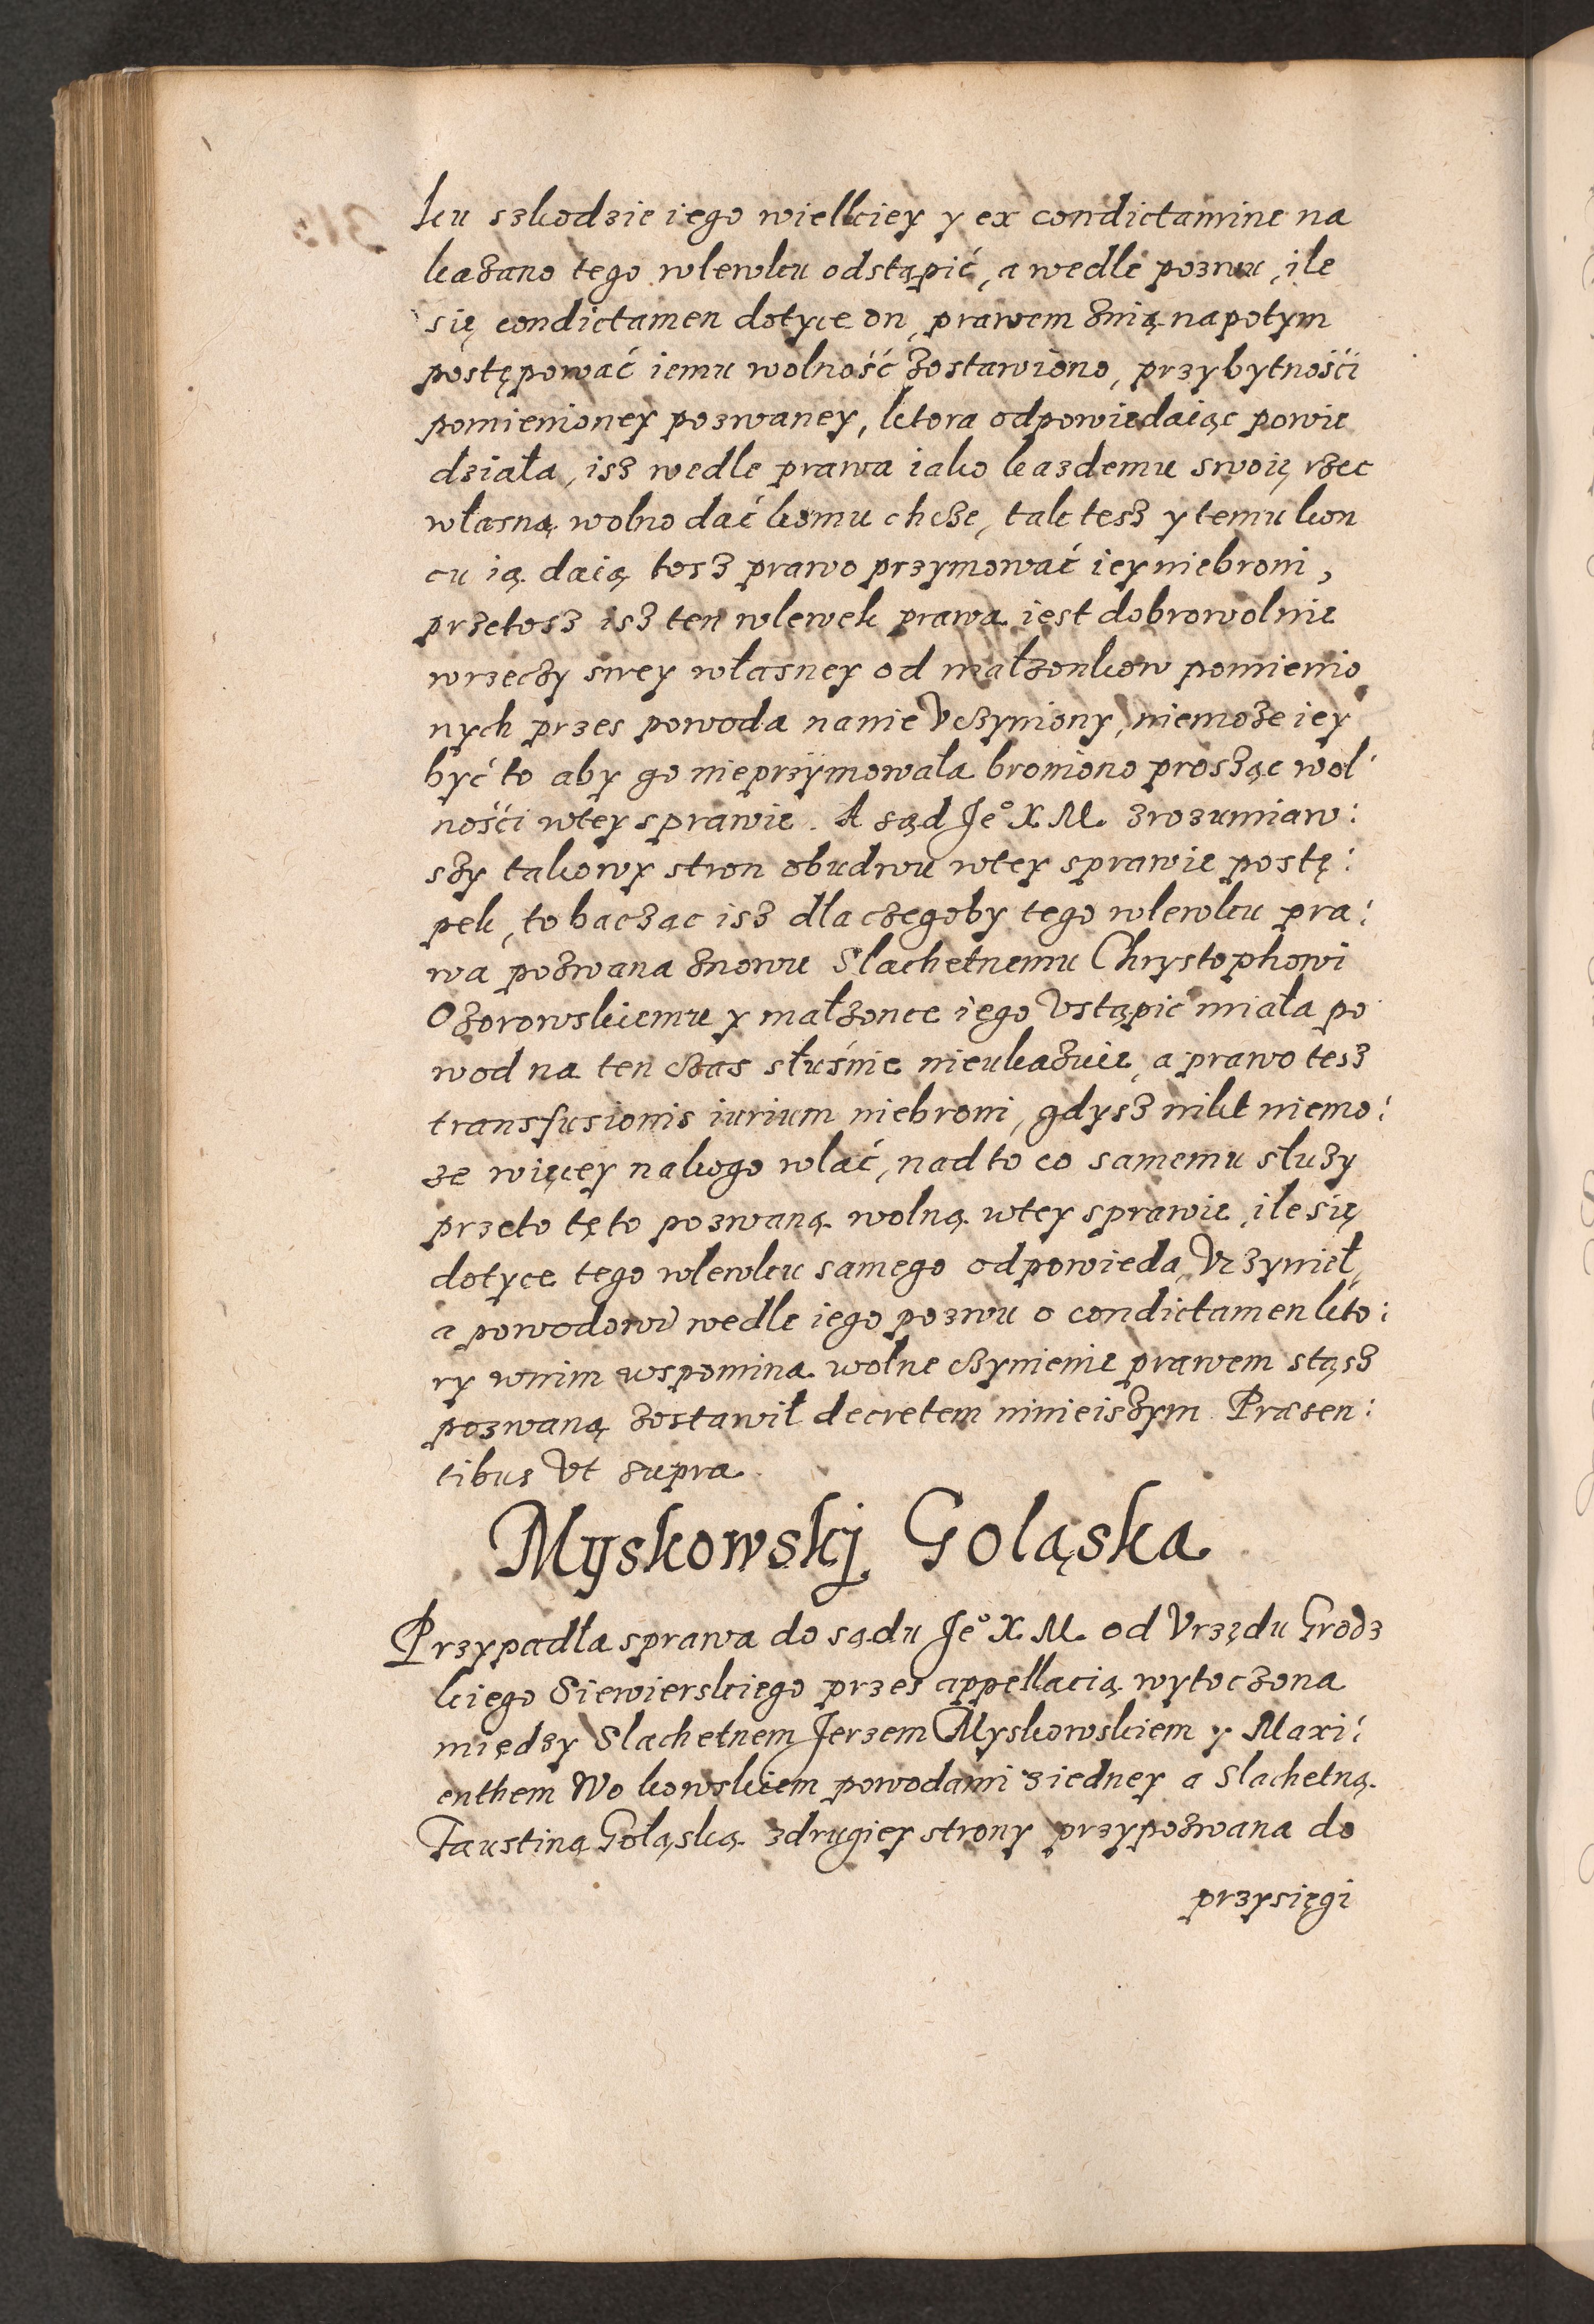 ku szkodzie iego wielkiey y ex condictamine na
kazano tego wlewku odstąpić, a wedle pozwu, ile
się condictamen dotyce on, prawem znią napotym
postępować iemu wolność zostawiono, przybytności
pomienioney pozwaney, ktora odpowiedaiąc powie
działa, isz wedle prawa iako kazdemu swoię rzec
własną wolno dać komu chcze, tak tesz y temu kon
cu ią daią tosz prawo przymować iey niebroni,
przetosz isz ten wlewek prawa iest dobrowolnie
wrzeczy swey własney od małzonkow pomienio
nych przes powoda nanie Vczyniony, niemoze iey
być to aby go nieprzÿmowała broniono prosząc wol
ności wtey sprawie. A sąd Je° X. M. zrozumiaw:
szy takowy stron obudwu wtey sprawie postę:
pek, to bacząc isz dla czegoby tego wlewku pra:
wa pozwana znowu Slachetnemu Chrystophowi
Ozorowskiemu y małzonce iego Vstąpić miała po
wod na ten czas słuśnie nieukazuie, a prawo tesz
transfusionis iurium niebroni, gdysz nikt niemo:
ze więcey nakogo wlać, nad to co samemu słuzy
przeto tęto pozwaną wolną wtey sprawie, ile się
dotyce tego wlewku samego odpowieda, Vczynieł,
a powodowi wedle iego pozwu o condictamen kto:
ry wnim wspomina wolne czynienie prawem stąsz
pozwaną zostawił decretem ninieiszym. Præsen:
tibus Vt supra
Myskowskj Goląska
Przypadła sprawa do sądu Je° X. M. od Vrzędu Grodz
kiego Siewierskiego przes appellacią wytoczona
między Slachetnem Jerzem Myskowskiem y Maxi:
enthem Wo kowskiem powodami ziedney a Slachetną
Faustiną Goląską zdrugiey strony przypozwana do
przysięgi